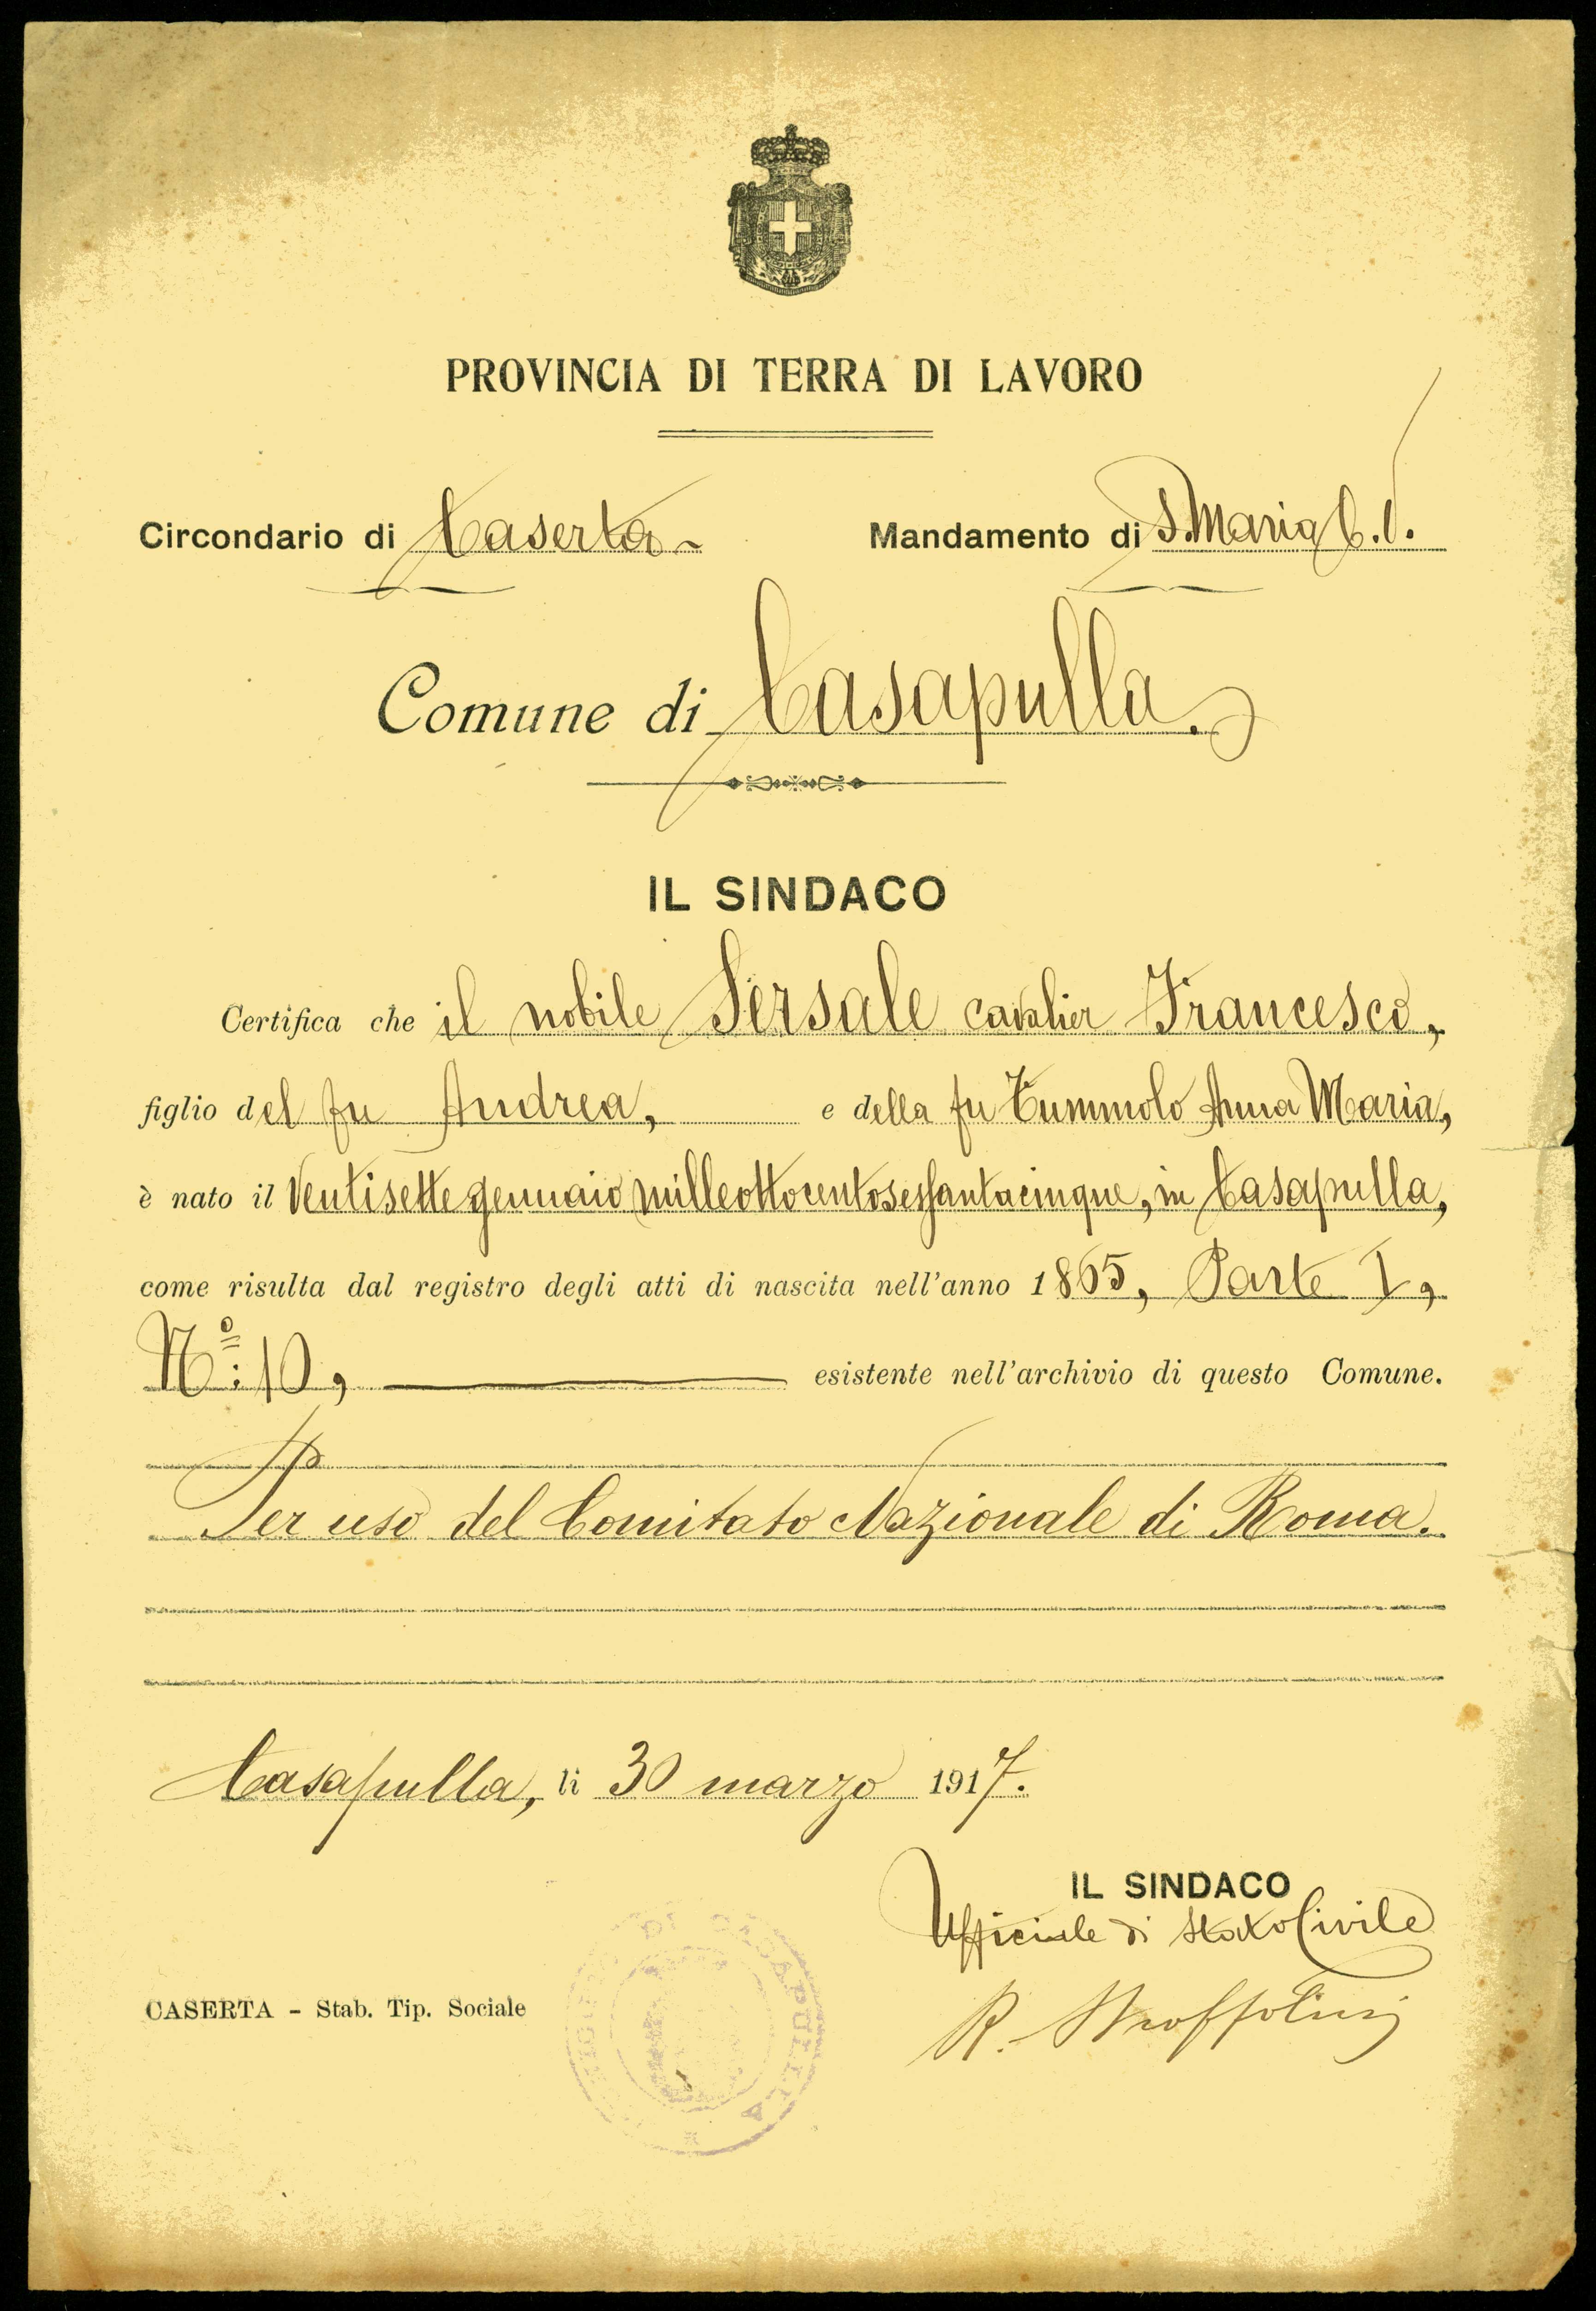 PROVINCIA DI TERRA DI LAVORO
Circondario di Caserta Mandamento di S. Maria C. V.
Comune di Casapulla.
IL SINDACO
Certifica che il nobile Sersale cavalier Francesco,
figlio del fu Andrea, e della fu Tummolo Anna Maria,
è nato il Ventisette gennaio milleottocentosessantacinque, in Casapulla,
come risulta dal registro degli atti di nascita nell'anno 1865, Parte I,
Nº: 10, esistente nell'archivio di questo Comune.
Per uso del Comitato Nazionale di Roma.
Casapulla, li 30 marzo 1917.
IL SINDACO
Ufficiale di Stato Civile
R.
CASERTA - Stab. Tip. Sociale
DI CASAPULLA